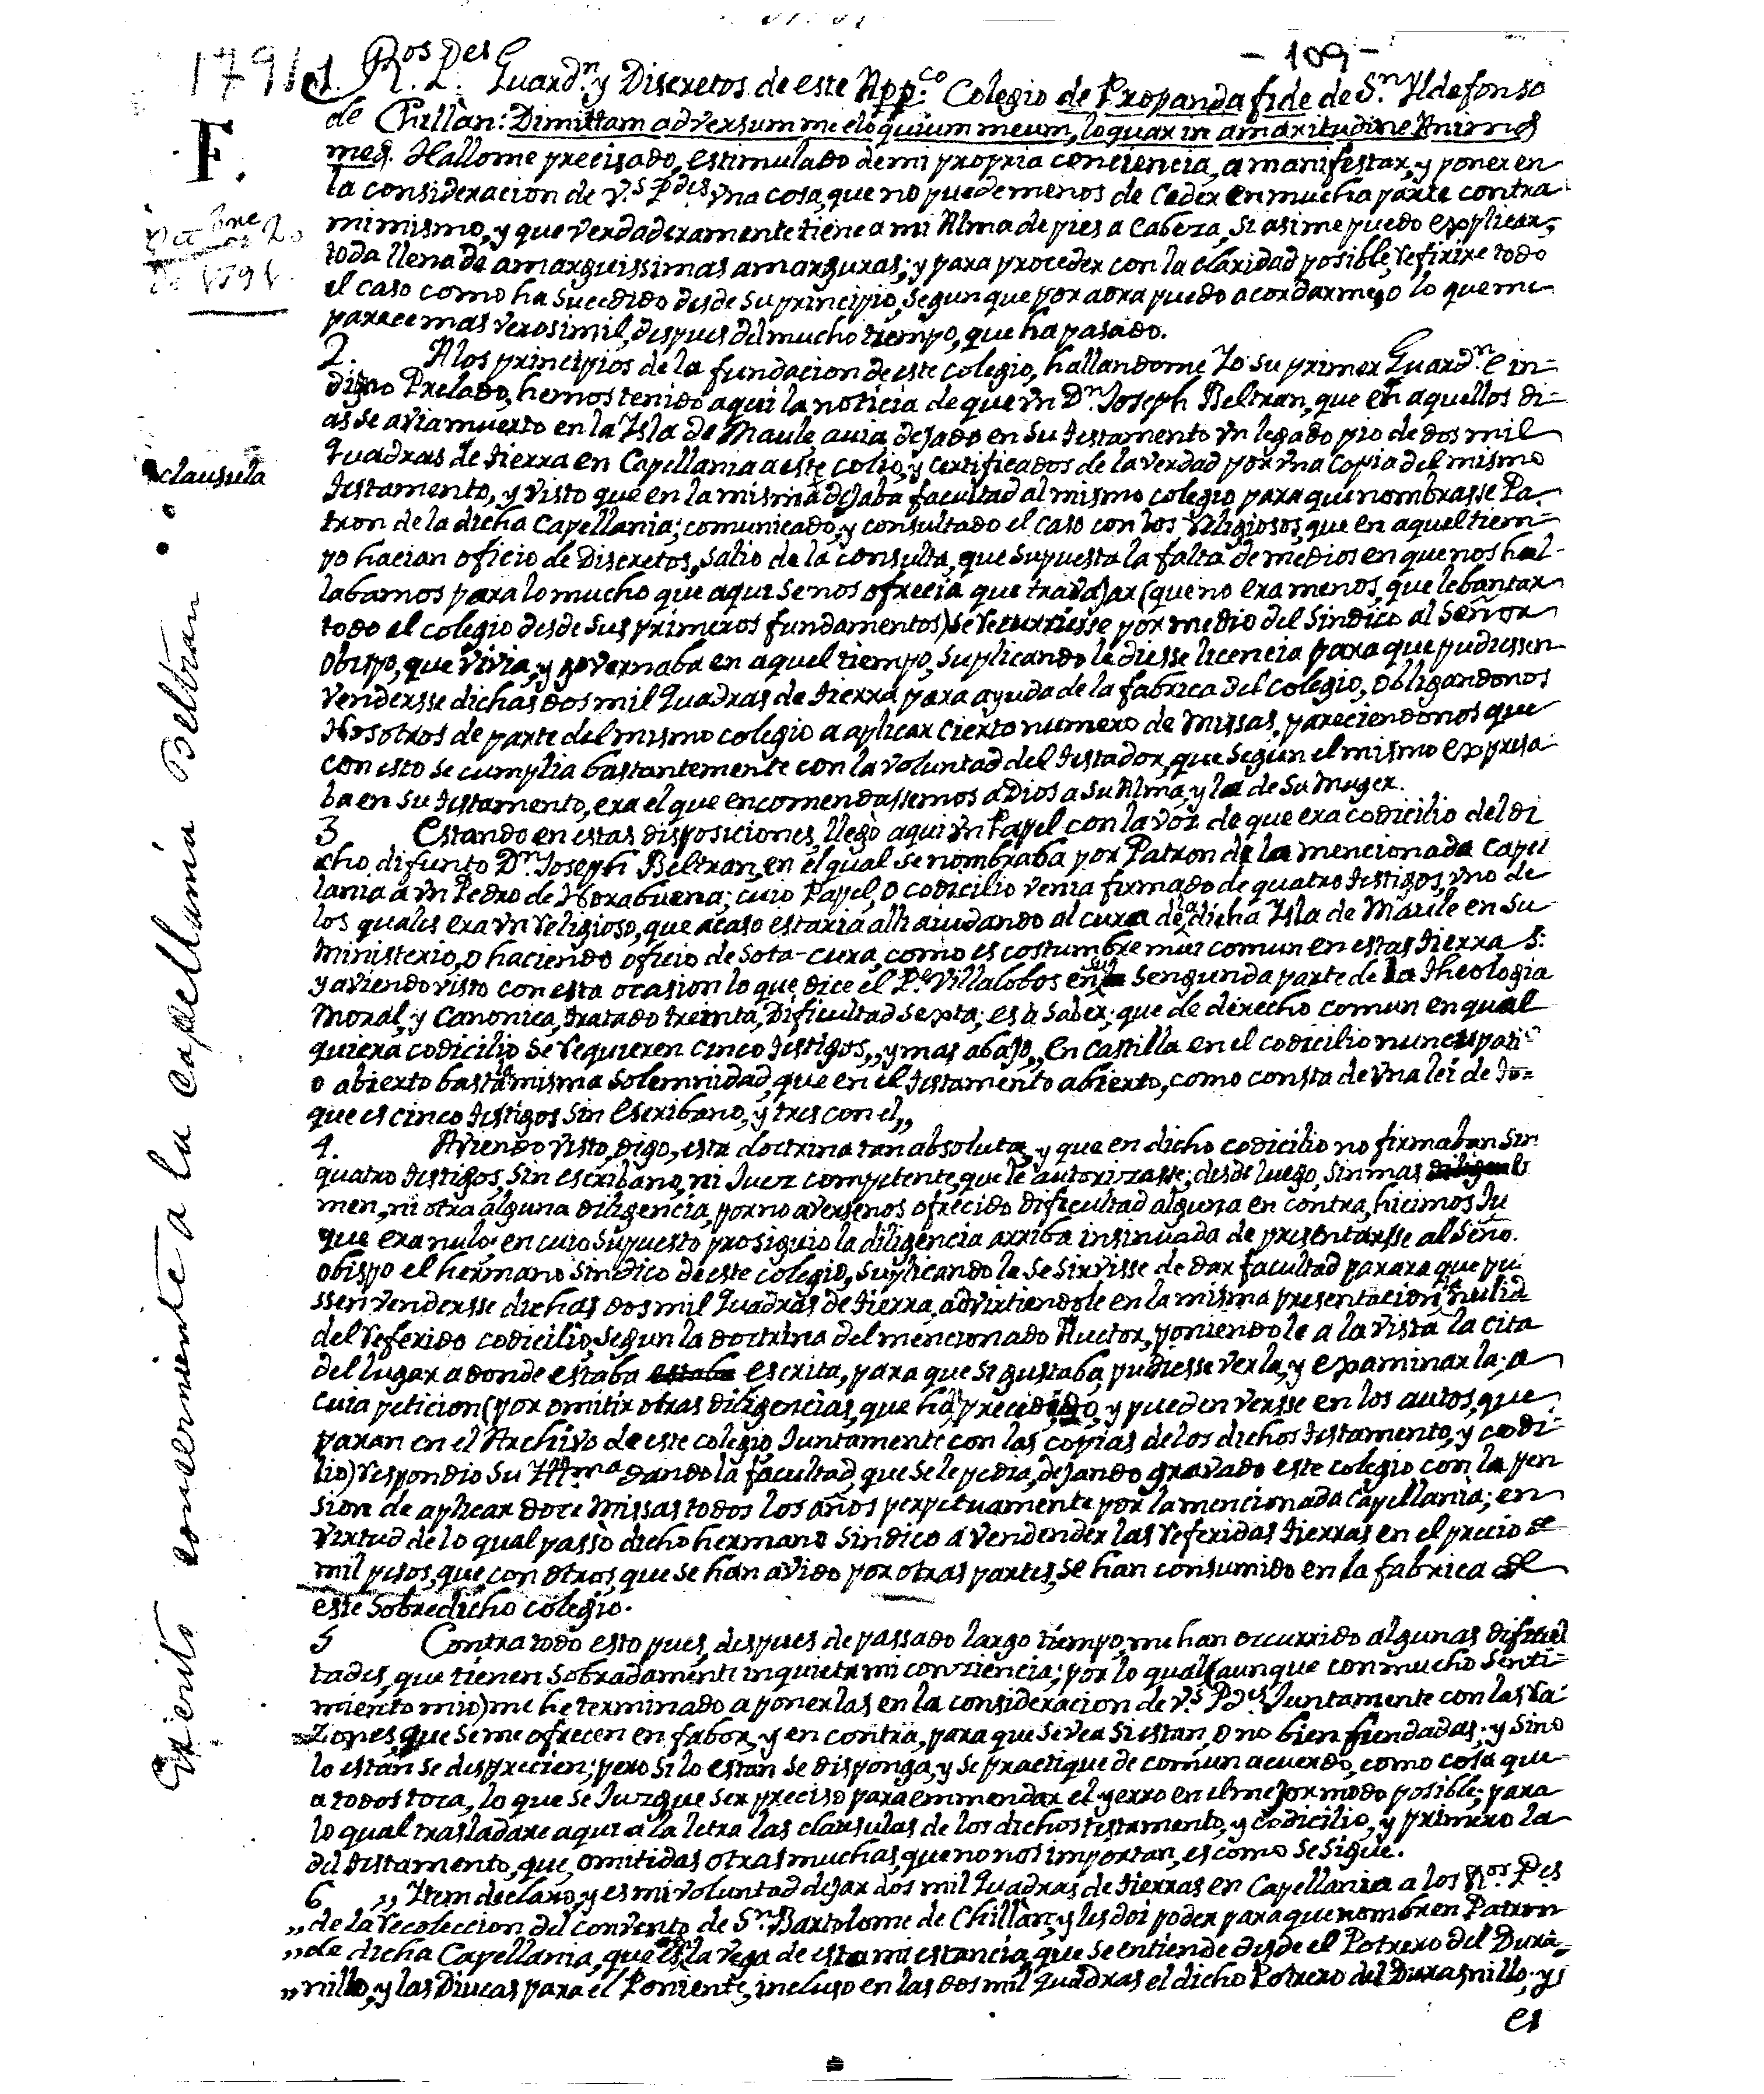 - 109 -
1791
F.
Oct.bre 20
de 1791.
clausula
Escrito concerniente a la capellania Beltran
1. R.os P.es Guard.n y Discretos de este App.co Colegio de Propanda fide de S.n Yldefonso
de Chillàn: Dimittam adversum me eloquium meum, loquar in amaritudine Animæ
meæ. Hallome precisado, estimulado de mi propria conciencia, a manifestar, y poner en
la consideracion de V.s P.des vna cosa, que no puede menos de Ceder en mucha parte contra
mi mismo, y que verdaderamente tiene a mi Alma de pies a Cabeza, si asi me puedo explicar,
toda llena de amarguissimas amarguras; y para proceder con la claridad posible, refirirè todo
el caso como ha sucedido desde su principio, segun que por aora puedo acordarme, o lo que me
parece mas verosimil, despues del mucho tiempo, que ha pasado.
2. A los principios de la fundacion de este colegio, hallandome Yo su primer Guard.n e in=
digno Prelado, hemos tenido aqui la noticia de que vn D.n Joseph Beltran, que en aquellos di=
as se avia muerto en la Ysla de Maule, avia dejado en su testamento vn legado pio de dos mil
quadras de tierra en Capellania a este colio, y certificados de la verdad por vna copia del mismo
testamento, y visto que en la misma dejaba facultad al mismo colegio para que nombrasse Pa=
tron de la dicha Capellania; comunicado, y consultado el caso con los religiosos, que en aquel tiem=
po hacian oficio de Discretos, saliò de la consulta, que supuesta la falta de medios en que nos hal-
labamos para lo mucho que aqui se nos ofrecia que trabajar (que no era menos, que lebantar
todo el colegio desde sus primeros fundamentos) se recurriesse por medio del Sindico al Señor
Obispo, que vivia, y governaba en aquel tiempo, suplicandole diesse licencia para que pudiessen
venderse dichas dos mil quadras de tierra para ayuda de la fabrica del colegio, obligandonos
Nosotros de parte del mismo colegio a aplicar cierto numero de missas, pareciendonos que
con esto se cumplia bastantemente con la voluntad del testador, que segun el mismo expresa
ba en su testamento, era el que encomendassemos a Dios a su Alma, y la de su Muger.
3 Estando en estas disposiciones, llegò aqui vn Papel con la voz de que era codicilio del di
cho difunto D.n Joseph Beltran, en el qual se nombraba por Patron de la mencionada Capel
lania a vn Pedro de Norabuena; cuio Papel, o codicilio venia firmado de quatro testigos, vno de
los quales era vn religioso, que acaso estaria alli aiudando al cura de la dicha Ysla de Maule en su
ministerio, o haciendo oficio de Sota-cura, como es costumbre mui comun en estas tierras:
y aviendo visto con esta ocasion lo que dice el P.e Villalobos en su Sengunda parte de la theologia
Moral, y Canonica, tratado treinta, Dificultad Sexta; es à saber; que de derecho comun en qual
quiera codicilio se requieren cinco testigos,, y mas abajo,, En Castilla en el codicilio nuncupati
o abierto basta la misma solemnidad, que en el testamento abierto, como consta de vna lei de To=
que es cinco testigos sin Escribano, y tres con el,,
4. Aviendo visto, digo, esta doctrina tan absoluta, y que en dicho codicilio no firmaban sin
quatro testigos, sin escribano, ni Juez competente, que le autorizasse; desde luego, sin mas
men, ni otra alguna diligencia, por no avernos ofrecido dificultad alguna en contra, hicimos Ju
que era nulo: en cuio supuesto prosiguiò la diligencia arriba insinuada de presentarse al Seño.
obispo el hermano Sindico de este colegio, suplicandole se sirviesse de dar facultad parara que pu
ssen venderse dichas dos mil quadras de tierra, advirtiendole en la misma presentacion la nulid
del referido codicilio, segun la doctrina del mencionado Auctor, poniendole a la vista la cita
del lugar a donde estaba estaba escrita, para que si gustaba, pudiesse verla, y examinarla; a
cuia peticion (por omitir otras diligencias, que han precedido, y pueden verse en los autos, que
paran en el Archivo de este colegio, Juntamente con las copias de los dichos testamento, y codi=
lio) respondiò su Yll.ma dando la facultad, que se le pedia, dejando gravado este colegio con la pen
sion de aplicar doce Missas todos los años perpetuamente por la mencionada Capellania; en
virtud de lo qual passò dicho hermano Sindico a vendender las referidas tierras en el precio de
mil pesos, que con otros, que se han avido por otras partes, se han consumido en la fabrica de
este sobredicho colegio.
5 Contra todo esto pues, despues de passado largo tiempo, me han occurrido algunas dificul
tades, que tienen sobradamente inquieta mi conziencia; por lo qual (aunque con mucho senti=
miento mio) me he terminado a ponerlas en la consideracion de V.s P.des Juntamente con las ra
zones, que se me ofrecen en fabor, y en contra, para que se vea si estan, o no bien fundadas; y sino
lo estan se desprecien; pero si lo estan se disponga, y se practique de comun acuerdo, como cosa que
a todos toca, lo que se Juzgue ser preciso para emmendar el yerro en el mejor modo posible; para
lo qual trasladarè aqui a la letra las clausulas de los dichos testamento, y codicilio, y primero la
del testamento, que, omitidas otras muchas, que no nos importan, es como se sigue.
6 ,, Ytem declaro, y es mi voluntad dejar dos mil quadras de tierras en Capellania a los R.os P.es
,, de la recoleccion del convento de S.n Bartolome de Chillàn, y les doi poder para que nombren Patron
,, de dicha Capellania, que es la vega de esta mi estancia, que se entiende desde el Potrero del Duras=
,, nillo, y las Diucas para el Poniente, incluso en las dos mil quadras el dicho Potrero del Durasnillo; y
es